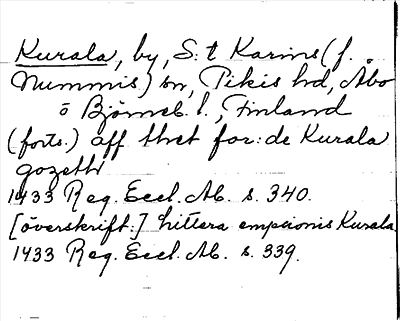 Kurala, by, S:t Karins (f.
Nummis) sn, Pikis hd, Åbo
o Björneb. l., Finland
(forts.) aff thet for:de Kurala
gozeth
1433 Reg. Eccl. Ab. s. 340.
[överskrift:] littera empcionis Kurala
1433 Reg. Eccl. Ab. s. 339.